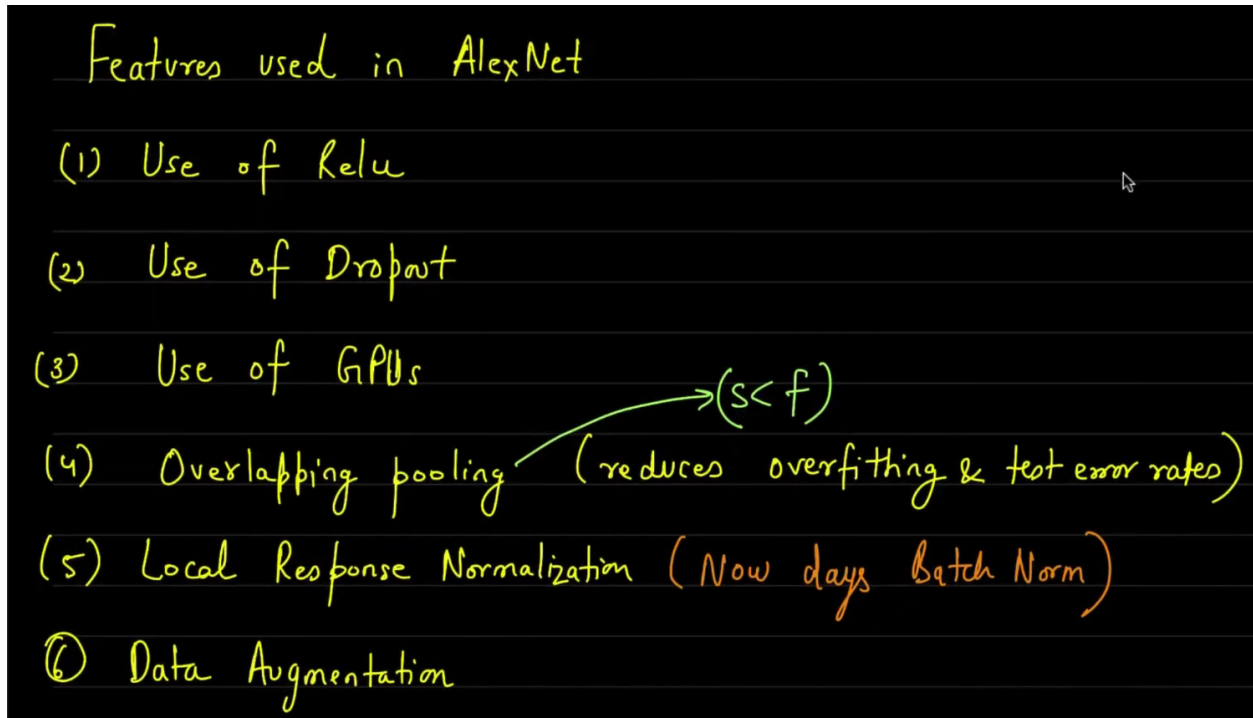 Features used in AlexNet
(1) Use of Relu
(2) Use of Dropout
(3) Use of GPUs
(s< f)
(4) Overlapping pooling (reduces overfitthing & test error rates)
(5) Local Response Normalization (Now days Batch Norm)
6 Data Augmentation